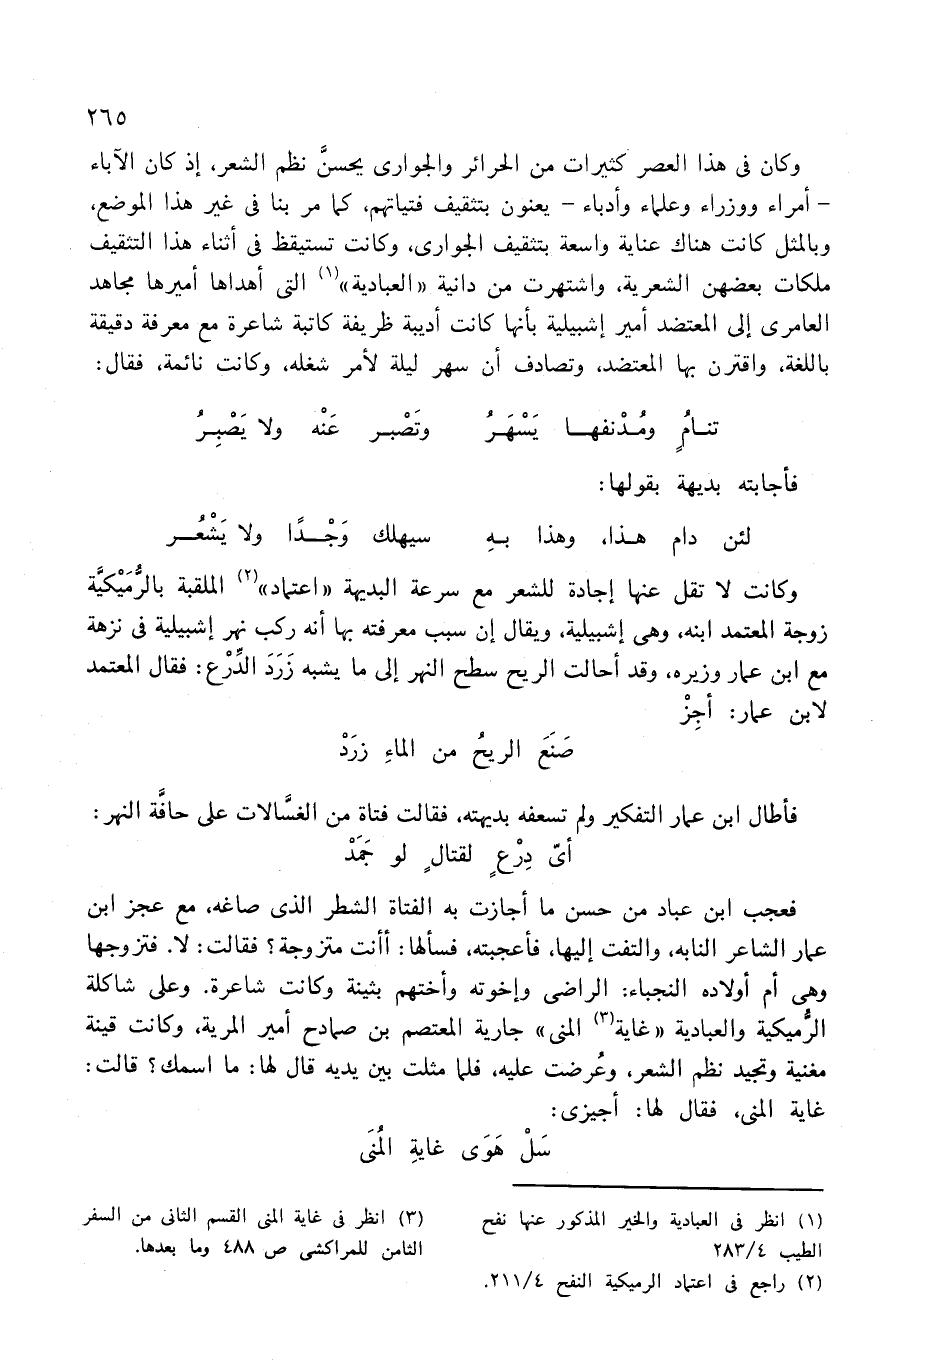 ٢٦٥
وكان فى هذا العصر كثيرات من الحرائر والجوارى يحسنَّ نظم الشعر، إذ كان الآباء
– أمراء ووزراء وعلماء وأدباء – يعنون بتثقيف فتياتهم، كما مر بنا فى غير هذا الموضع،
وبالمثل كانت هناك عناية واسعة بتثقيف الجوارى، وكانت تستيقظ فى أثناء هذا التثقيف
ملكات بعضهن الشعرية، واشتهرت من دانية «العبادية»(١) التى أهداها أميرها مجاهد
العامرى إلى المعتضد أمير إشبيلية بأنها كانت أديبة ظريفة كاتبة شاعرة مع معرفة دقيقة
باللغة، واقترن بها المعتضد، وتصادف أن سهر ليلة لأمر شغله، وكانت نائمة، فقال:
تنـامُ ومُـدْنفهـا يَسْهَـرُ وتَصْبـر عَنْه ولا يَصْبِـرُ
فأجابته بديهة بقولها:
لئن دام هـذا، وهذا بـهِ سيهلك وَجْـدًا ولا يَشْعُـر
وكانت لا تقل عنها إجادة للشعر مع سرعة البديهة «اعتماد»(٢) الملقبة بالرُّمَيْكيَّة
زوجة المعتمد ابنه، وهى إشبيلية، ويقال إن سبب معرفته بها أنه ركب نهر إشبيلية فى نزهة
مع ابن عمار وزيره، وقد أحالت الريح سطح النهر إلى ما يشبه زَرَدَ الدِّرْع: فقال المعتمد
لابن عمار: أجِزْ
صَنَعَ الريحُ من الماءِ زرَدْ
فأطال ابن عمار التفكير ولم تسعفه بديهته، فقالت فتاة من الغسَّالات على حافَّة النهر:
أىّ دِرْعٍ لقتالٍ لو جَمَدْ
فعجب ابن عباد من حسن ما أجازت به الفتاة الشطر الذى صاغه، مع عجز ابن
عمار الشاعر النابه، والتفت إليها، فأعجبته، فسألها: أأنت متزوجة؟ فقالت: لا. فتزوجها
وهى أم أولاده النجباء: الراضى وإخوته وأختهم بثينة وكانت شاعرة. وعلى شاكلة
الرُّميكية والعبادية «غاية(٣) المنى» جارية المعتصم بن صمادح أمير المرية، وكانت قينة
مغنية وتجيد نظم الشعر، وعُرضت عليه، فلما مثلت بين يديه قال لها: ما اسمك؟ قالت:
غاية المنى، فقال لها: أجيزى:
سَلْ هَوَى غايةِ المُنَى
(١) انظر فى العبادية والخبر المذكور عنها نفح
الطيب ٢٨٣/٤
(٢) راجع فى اعتماد الرميكية النفح ٢١١/٤.
(٣) انظر فى غاية المنى القسم الثانى من السفر
الثامن للمراكشى ص ٤٨٨ وما بعدها.